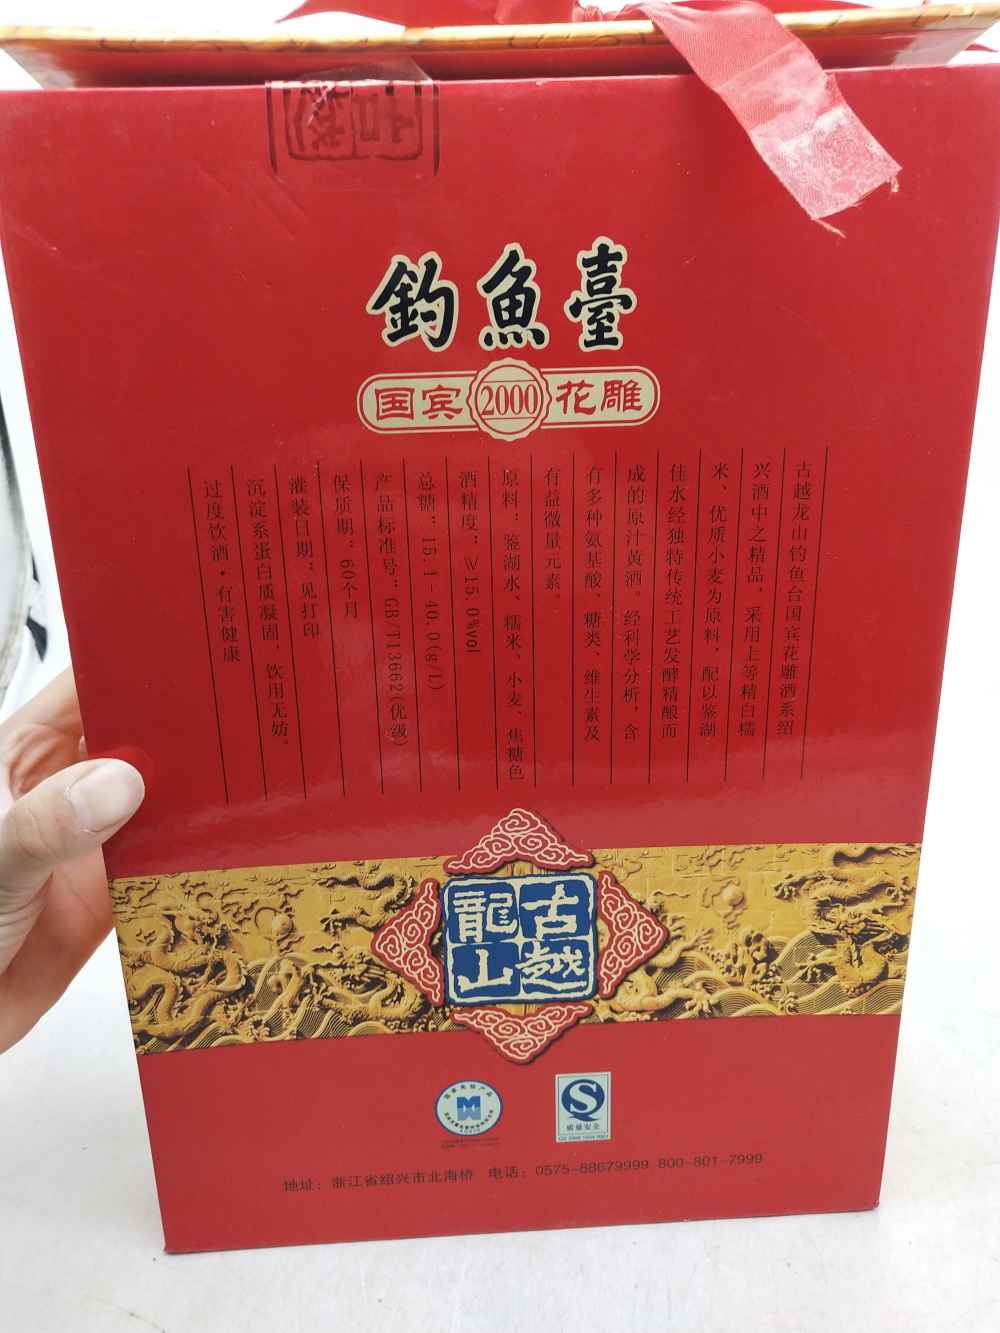 釣魚臺
国宾2000花雕
古越龙山钓鱼台国宾花雕酒系绍
兴酒中之精品，采用上等精白糯
米、优质小麦为原料，配以鉴湖
佳水经独特传统工艺发酵精酿而
成的原汁黄酒。经科学分析，含
有多种氨基酸、糖类、维生素及
有益微量元素。
原料：鉴湖水、糯米、小麦、焦糖色
酒精度：≥15.0%vol
总糖：15.1-40.0(g/L)
产品标准号：GB/T13662(优级)
保质期：60个月
灌装日期：见打印
沉淀系蛋白质凝固，饮用无妨。
过度饮酒·有害健康
古越
龍山
质量安全
地址：浙江省绍兴市北海桥 电话：0575-88679999 800-801-7999